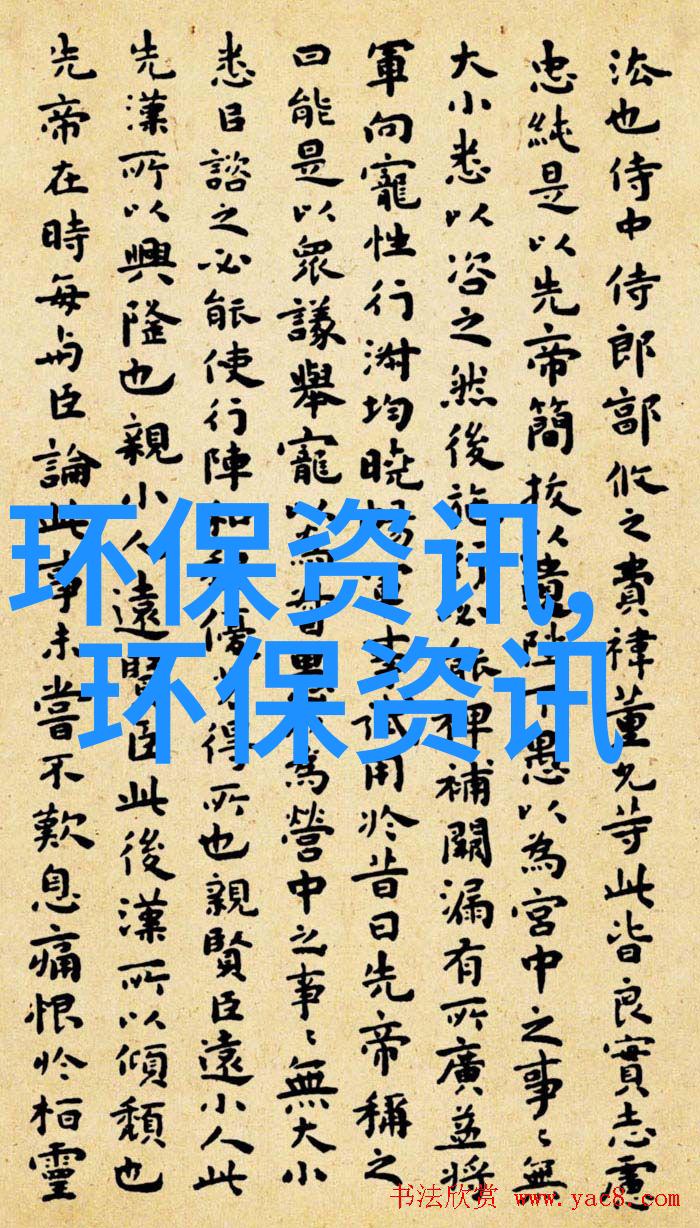 法也侍中侍郎郭攸之費禕董允等此皆良實志慮
忠純是以先帝簡拔以遺陛下愚以為宮中之事〻無
大小悉以咨之然後施行必能裨補闕漏有所廣益將
軍向寵性行淑均曉暢軍事試用於昔日先帝稱之
曰能是以眾議舉寵以為督愚以為營中之事〻無大小
悉㠯諮之必能使行陣和穆優劣得所也親賢臣遠小人此
先漢所以興隆也親小人遠賢臣此後漢所以傾頹也
先帝在時每与臣論此事未嘗不歎息痛恨於桓靈
环保资讯,
环保资讯
书法欣赏 www.yac8.com